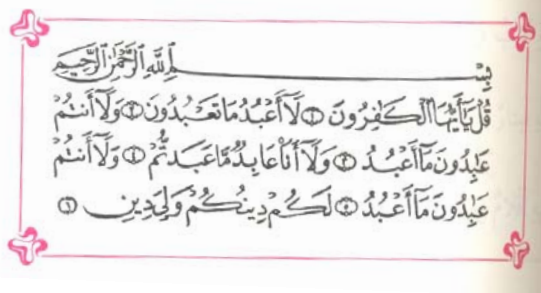 بِسْمِ اللَّهِ الرَّحْمَٰنِ الرَّحِيمِ
قُلْ يَا أَيُّهَا الْكَافِرُونَ ١ لَا أَعْبُدُ مَا تَعْبُدُونَ ٢ وَلَا أَنتُمْ
عَابِدُونَ مَا أَعْبُدُ ٣ وَلَا أَنَا عَابِدٌ مَّا عَبَدتُّمْ ٤ وَلَا أَنتُمْ
عَابِدُونَ مَا أَعْبُدُ ٥ لَكُمْ دِينُكُمْ وَلِيَ دِينِ ٦